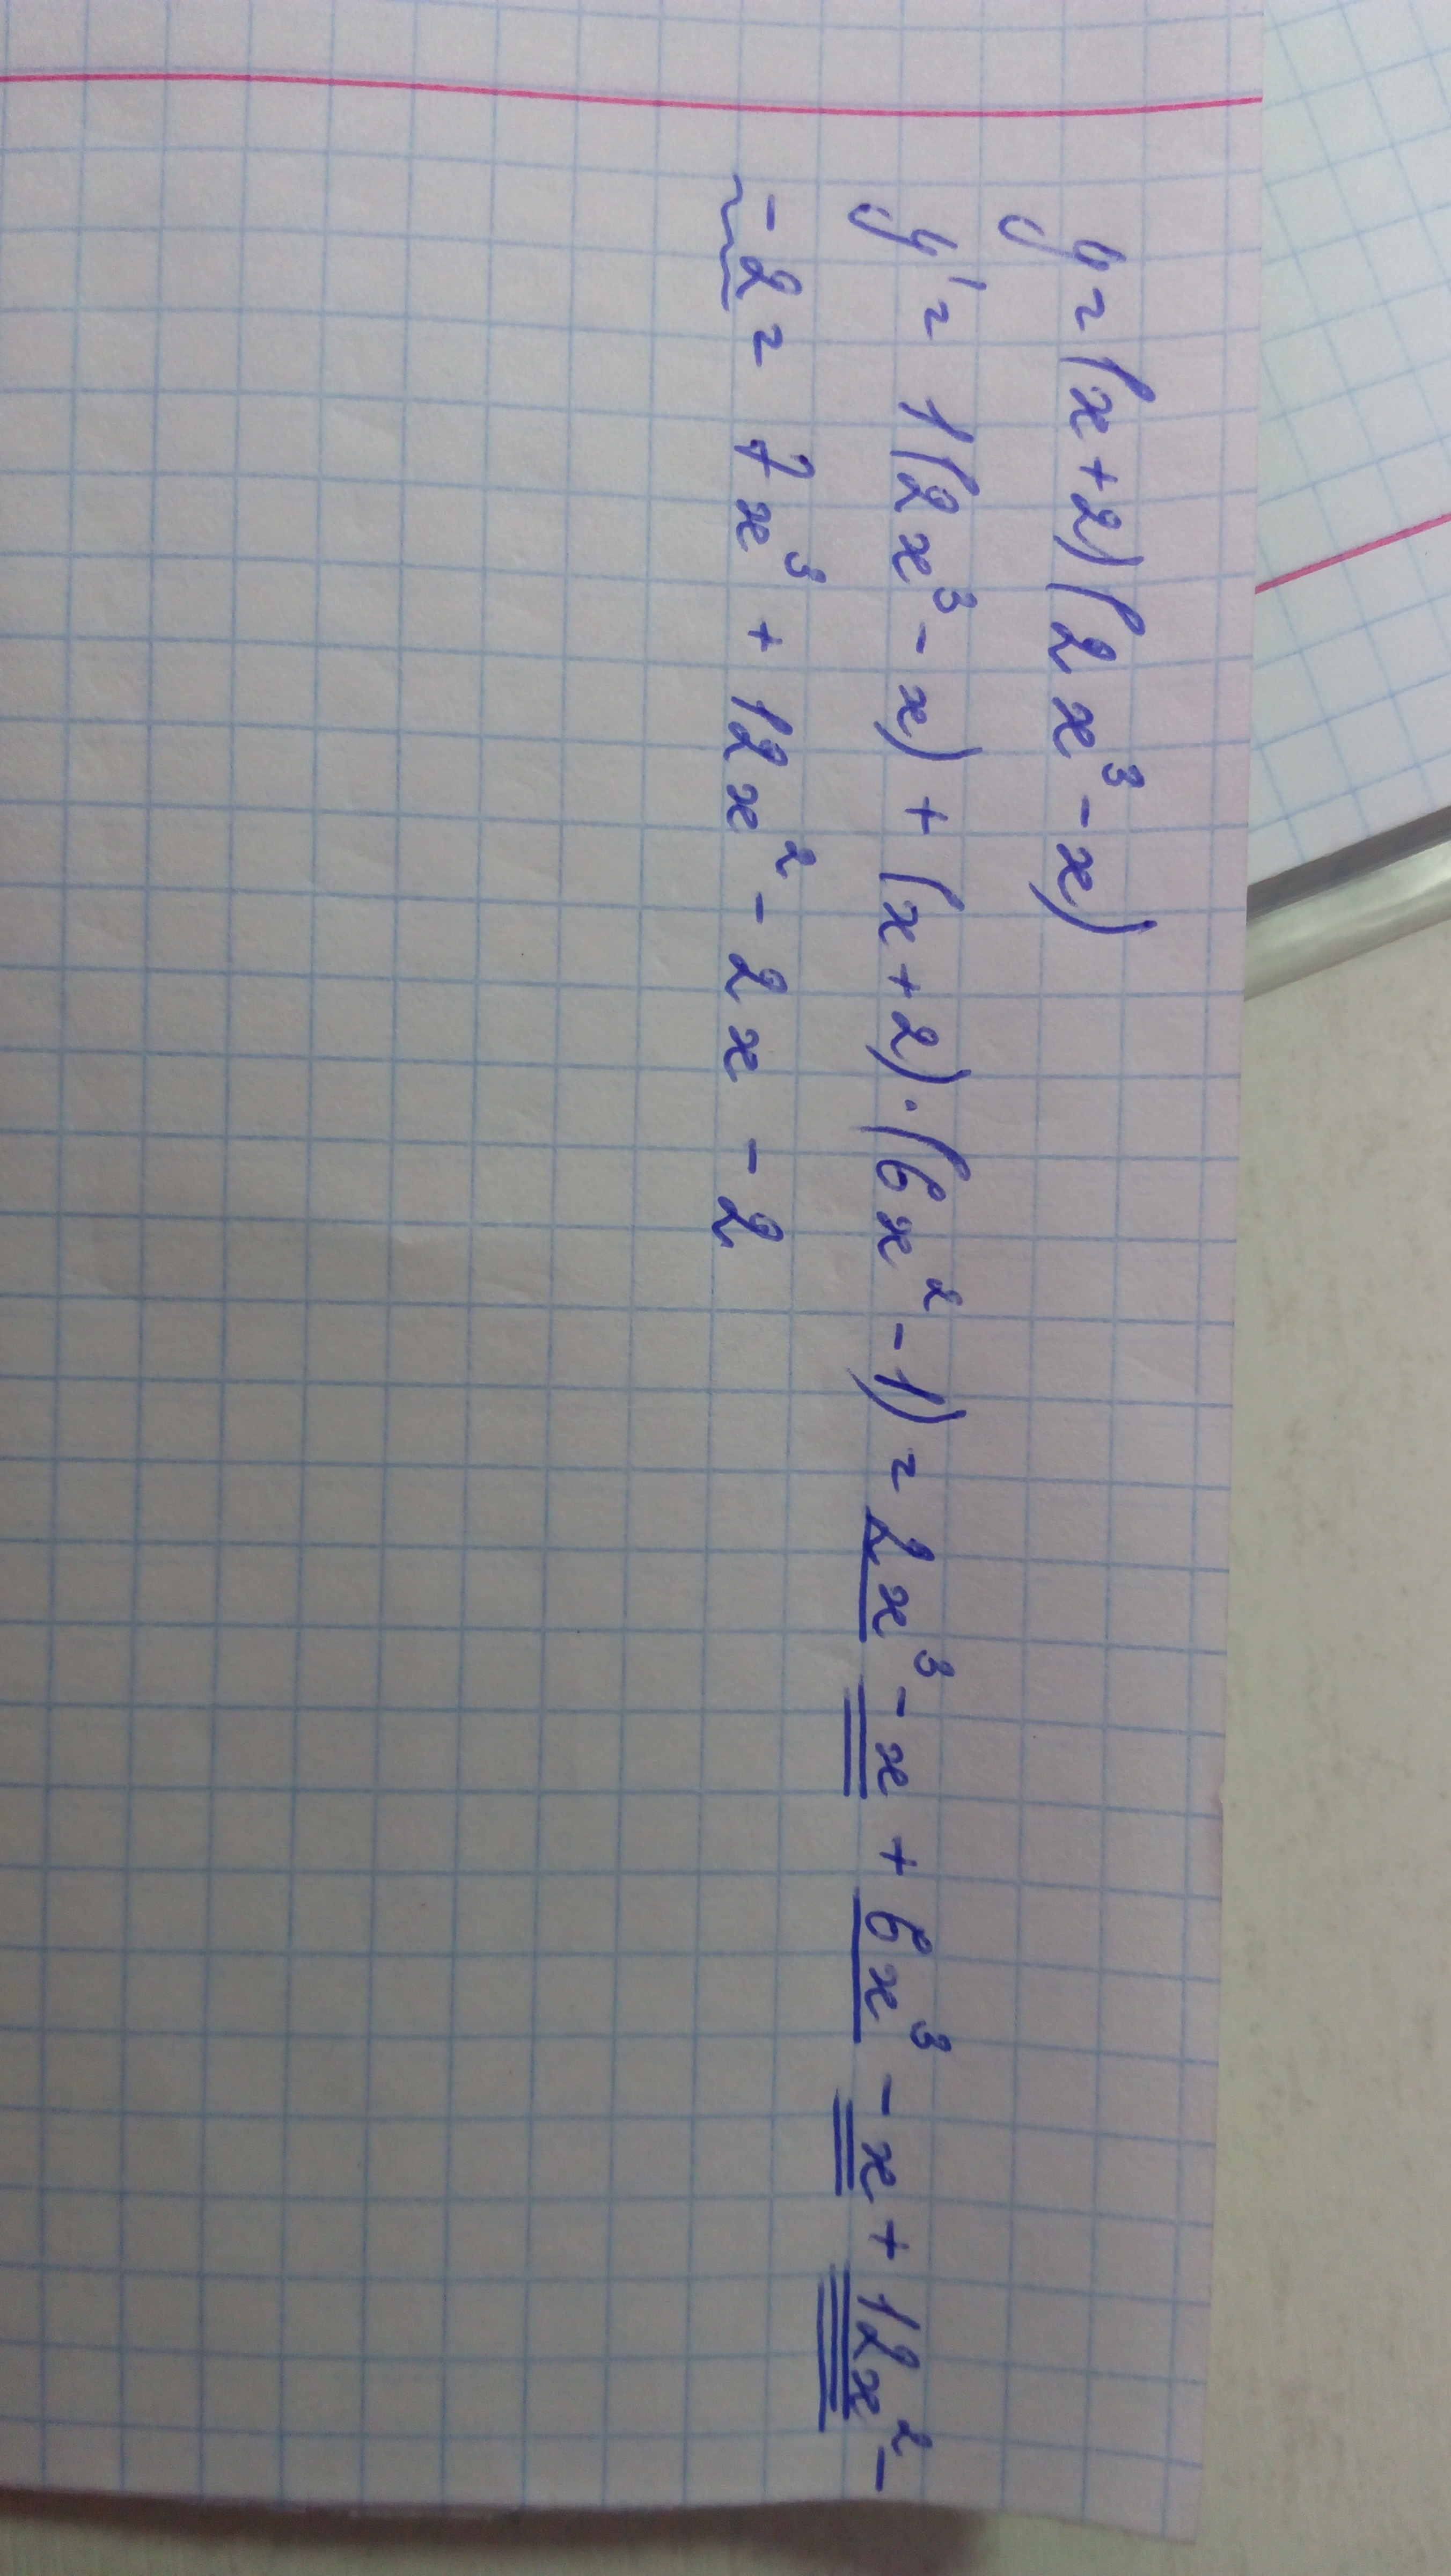 y = (x+2)(2x³-x)
y' = 1(2x³-x) + (x+2)·(6x²-1) = 2x³-x + 6x³-x + 12x²-
-2 = 7x³ + 12x² - 2x - 2